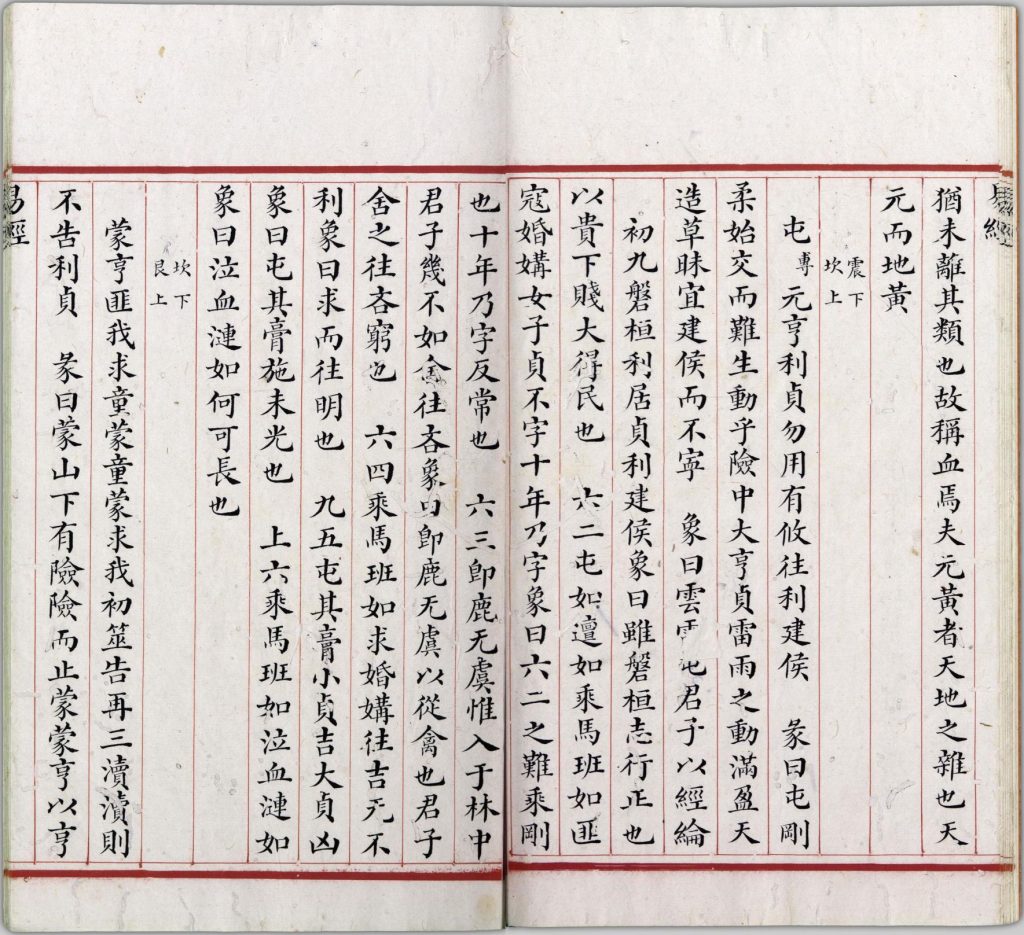 易經
猶未離其類也故稱血焉夫元黃者天地之雜也天
元而地黃
震下
坎上
屯專元亨利貞勿用有攸往利建侯　彖曰屯剛
柔始交而難生動乎險中大亨貞雷雨之動滿盈天
造草昧宜建侯而不寧　象曰雲屯君子以經綸
初九磐桓利居貞利建侯象曰雖磐桓志行正也
以貴下賤大得民也　六二屯如邅如乘馬班如匪
寇婚媾女子貞不字十年乃字象曰六二之難乘剛
也十年乃字反常也　六三卽鹿无虞惟入于林中
君子幾不如舍往吝象曰卽鹿无虞以從禽也君子
舍之往吝窮也　六四乘馬班如求婚媾往吉无不
利象曰求而往明也　九五屯其膏小貞吉大貞凶
象曰屯其膏施未光也　上六乘馬班如泣血漣如
象曰泣血漣如何可長也
坎下
艮上
蒙亨匪我求童蒙童蒙求我初筮告再三瀆瀆則
不告利貞　彖曰蒙山下有險險而止蒙蒙亨以亨
易經